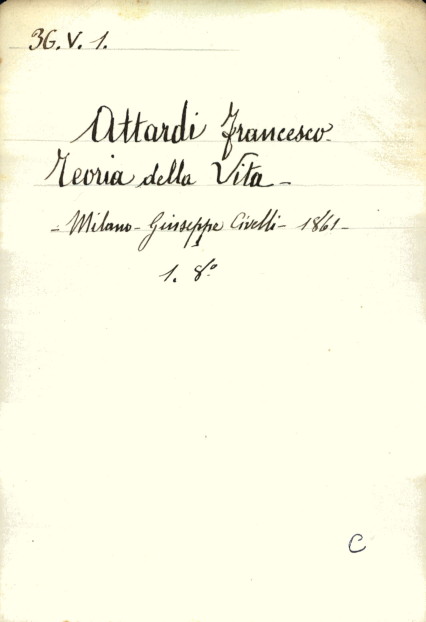 36.V.1.
Attardi Francesco.
Teoria della Vita -
- Milano - Giuseppe Civelli - 1861 -
1. 8°
C